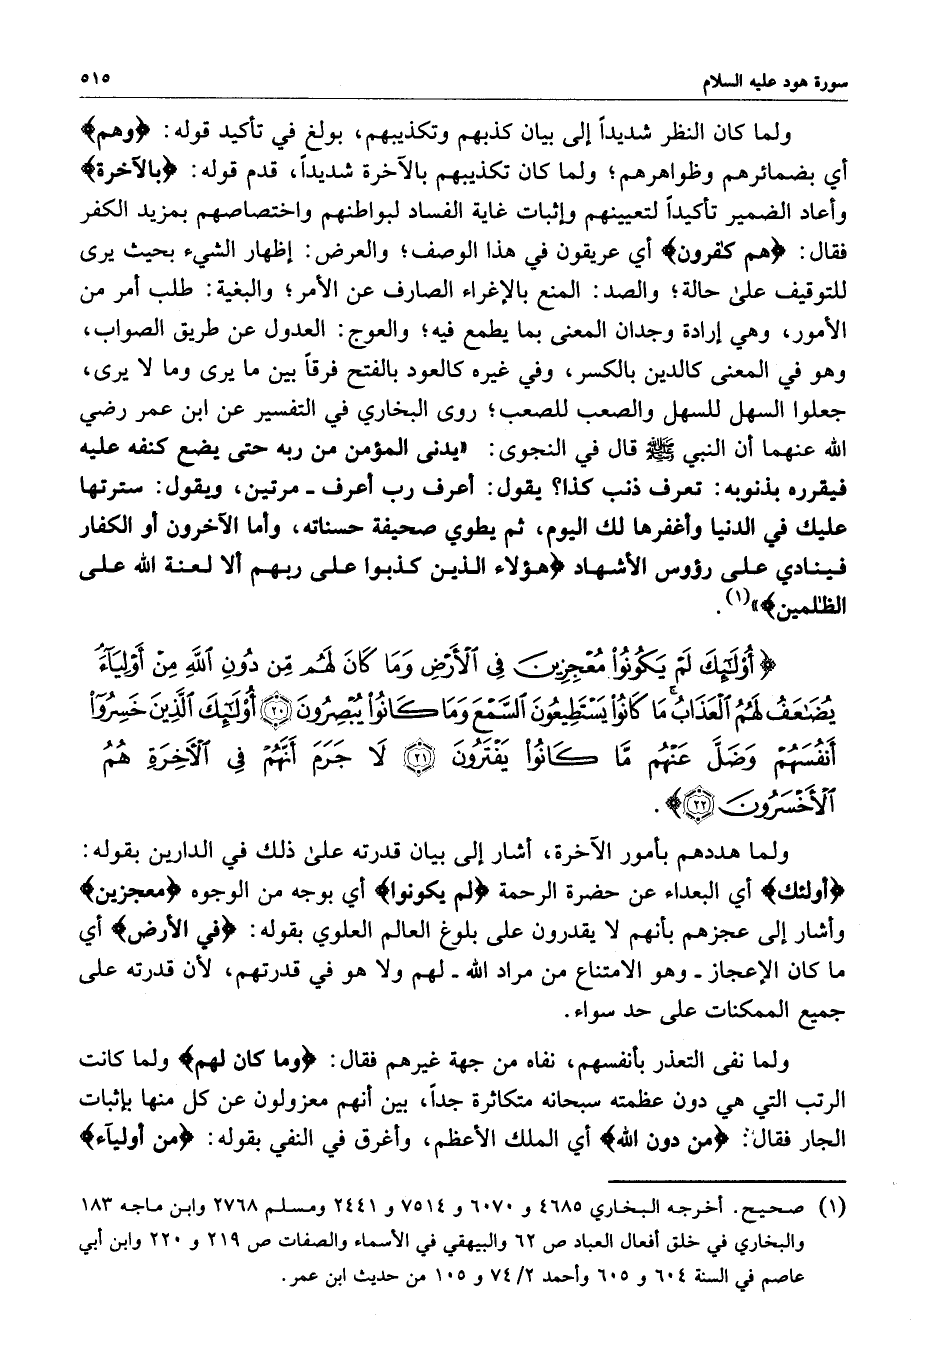 سورة هود عليه السلام ٥١٥
ولما كان النظر شديداً إلى بيان كذبهم وتكذيبهم، بولغ في تأكيد قوله: ﴿وهم﴾
أي بضمائرهم وظواهرهم؛ ولما كان تكذيبهم بالآخرة شديداً، قدم قوله: ﴿بالآخرة﴾
وأعاد الضمير تأكيداً لتعيينهم وإثبات غاية الفساد لبواطنهم واختصاصهم بمزيد الكفر
فقال: ﴿هم كٰفرون﴾ أي عريقون في هذا الوصف؛ والعرض: إظهار الشيء بحيث يرى
للتوقيف علىٰ حالة؛ والصد: المنع بالإغراء الصارف عن الأمر؛ والبغية: طلب أمر من
الأمور، وهي إرادة وجدان المعنى بما يطمع فيه؛ والعوج: العدول عن طريق الصواب،
وهو في المعنى كالدين بالكسر، وفي غيره كالعود بالفتح فرقاً بين ما يرى وما لا يرى،
جعلوا السهل للسهل والصعب للصعب؛ روى البخاري في التفسير عن ابن عمر رضي
الله عنهما أن النبي ﷺ قال في النجوى: «يدنى المؤمن من ربه حتى يضع كنفه عليه
فيقرره بذنوبه: تعرف ذنب كذا؟ يقول: أعرف رب أعرف ـ مرتين، ويقول: سترتها
عليك في الدنيا وأغفرها لك اليوم، ثم يطوي صحيفة حسناته، وأما الآخرون أو الكفار
فينادي على رؤوس الأشهاد ﴿هؤلاء الذين كذبوا على ربهم ألا لعنة الله على
الظٰلمين﴾»(١).
﴿أُوْلَـٰٓئِكَ لَمْ يَكُونُواْ مُعْجِزِينَ فِي ٱلْأَرْضِ وَمَا كَانَ لَهُم مِّن دُونِ ٱللَّهِ مِنْ أَوْلِيَآءَ
يُضَـٰعَفُ لَهُمُ ٱلْعَذَابُ ۚ مَا كَانُواْ يَسْتَطِيعُونَ ٱلسَّمْعَ وَمَا كَانُواْ يُبْصِرُونَ ٢٠ أُوْلَـٰٓئِكَ ٱلَّذِينَ خَسِرُوٓاْ
أَنفُسَهُمْ وَضَلَّ عَنْهُم مَّا كَانُواْ يَفْتَرُونَ ٢١ لَا جَرَمَ أَنَّهُمْ فِي ٱلْأَخِرَةِ هُمُ
ٱلْأَخْسَرُونَ ٢٢﴾.
ولما هددهم بأمور الآخرة، أشار إلى بيان قدرته علىٰ ذلك في الدارين بقوله:
﴿أولئك﴾ أي البعداء عن حضرة الرحمة ﴿لم يكونوا﴾ أي بوجه من الوجوه ﴿معجزين﴾
وأشار إلى عجزهم بأنهم لا يقدرون على بلوغ العالم العلوي بقوله: ﴿في الأرض﴾ أي
ما كان الإعجاز ـ وهو الامتناع من مراد الله ـ لهم ولا هو في قدرتهم، لأن قدرته على
جميع الممكنات على حد سواء.
ولما نفى التعذر بأنفسهم، نفاه من جهة غيرهم فقال: ﴿وما كان لهم﴾ ولما كانت
الرتب التي هي دون عظمته سبحانه متكاثرة جداً، بين أنهم معزولون عن كل منها بإثبات
الجار فقال: ﴿من دون الله﴾ أي الملك الأعظم، وأغرق في النفي بقوله: ﴿من أوليآء﴾
(١) صحيح. أخرجه البخاري ٤٦٨٥ و ٦٠٧٠ و ٧٥١٤ و ٢٤٤١ ومسلم ٢٧٦٨ وابن ماجه ١٨٣
والبخاري في خلق أفعال العباد ص ٦٢ والبيهقي في الأسماء والصفات ص ٢١٩ و ٢٢٠ وابن أبي
عاصم في السنة ٦٠٤ و ٦٠٥ وأحمد ٧٤/٢ و ١٠٥ من حديث ابن عمر.